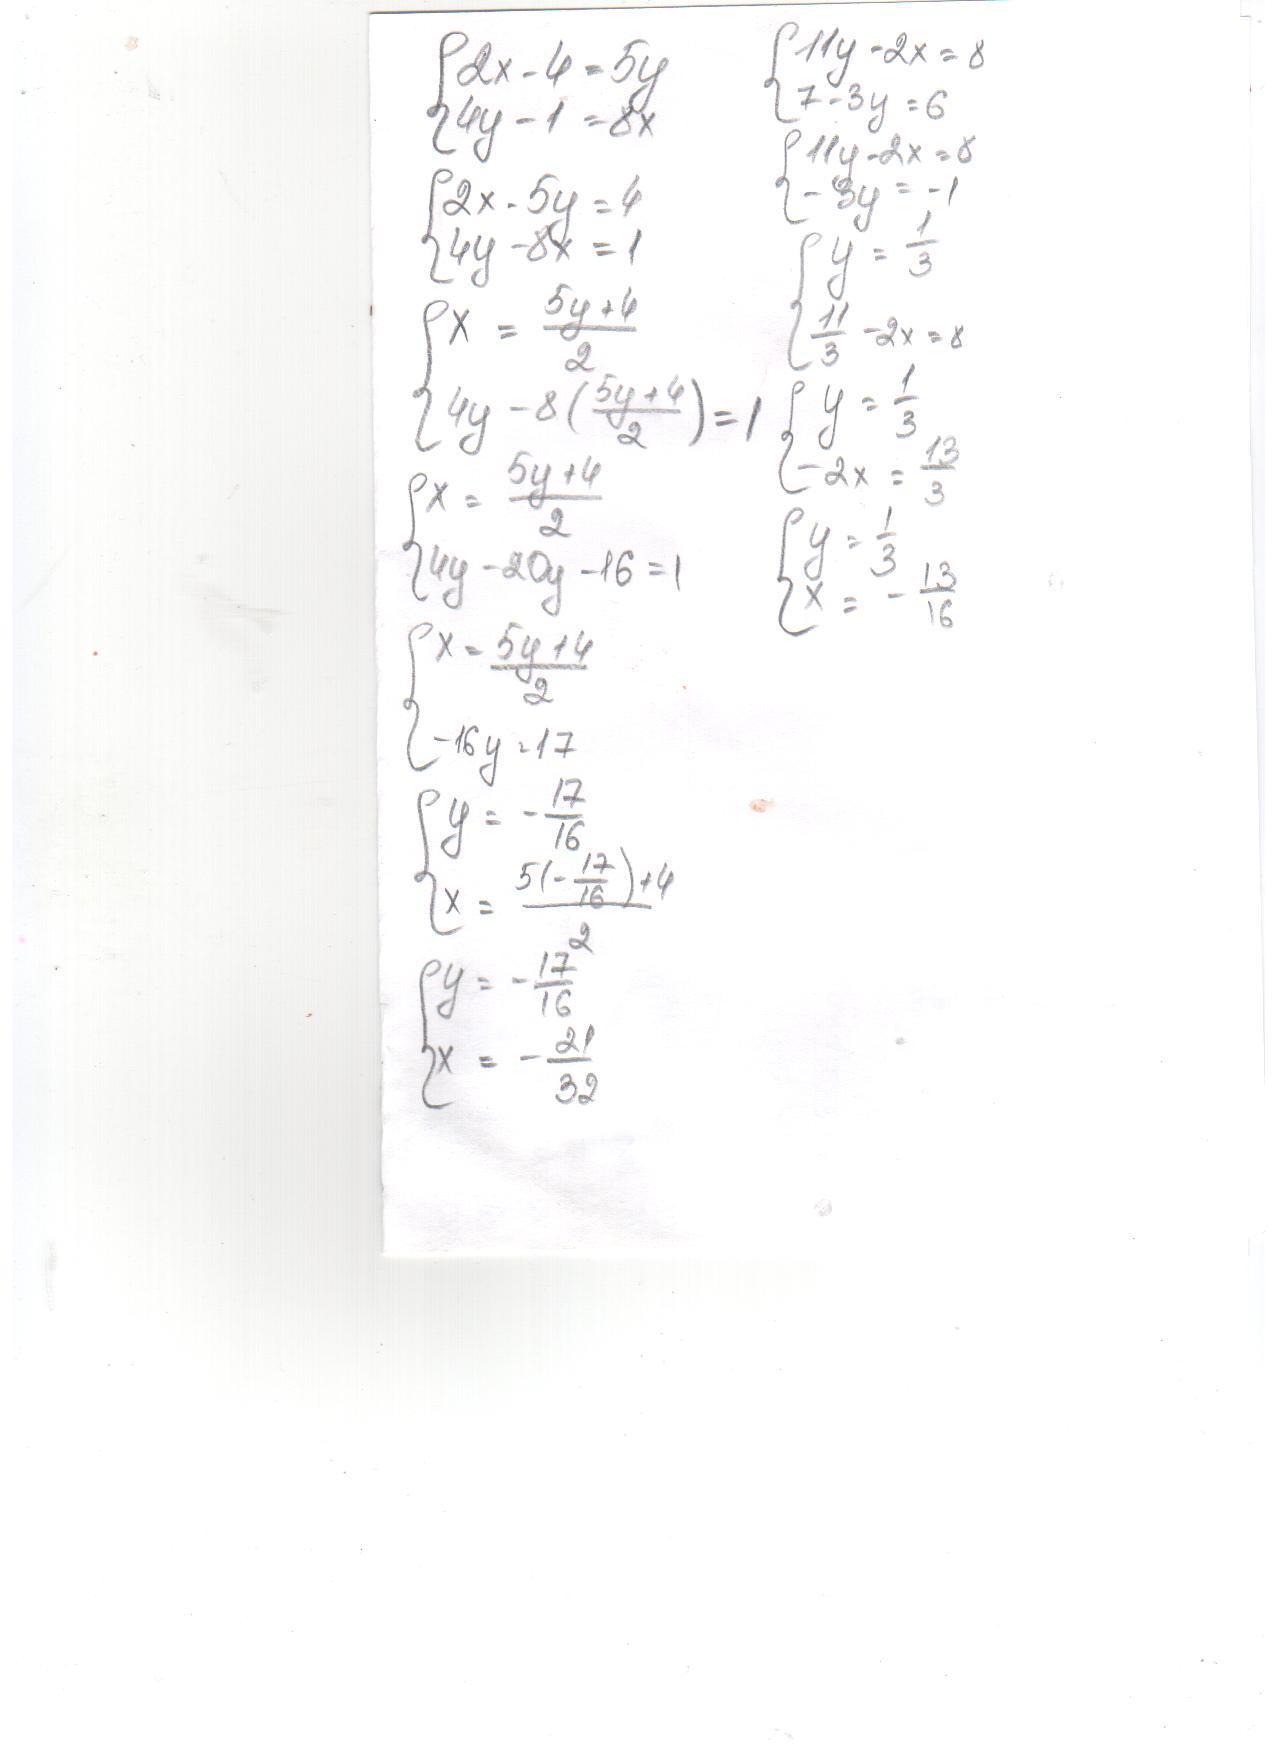 {2x - 4 = 5y
{4y - 1 = 8x
{2x - 5y = 4
{4y - 8x = 1
{x = (5y+4)/2
{4y - 8((5y+4)/2) = 1
{x = (5y+4)/2
{4y - 20y - 16 = 1
{x = (5y+4)/2
{-16y = 17
{y = -17/16
{x = (5(-17/16)+4)/2
{y = -17/16
{x = -21/32
{11y - 2x = 8
{7 - 3y = 6
{11y - 2x = 8
{-3y = -1
{y = 1/3
{11/3 - 2x = 8
{y = 1/3
{-2x = 13/3
{y = 1/3
{x = -13/16